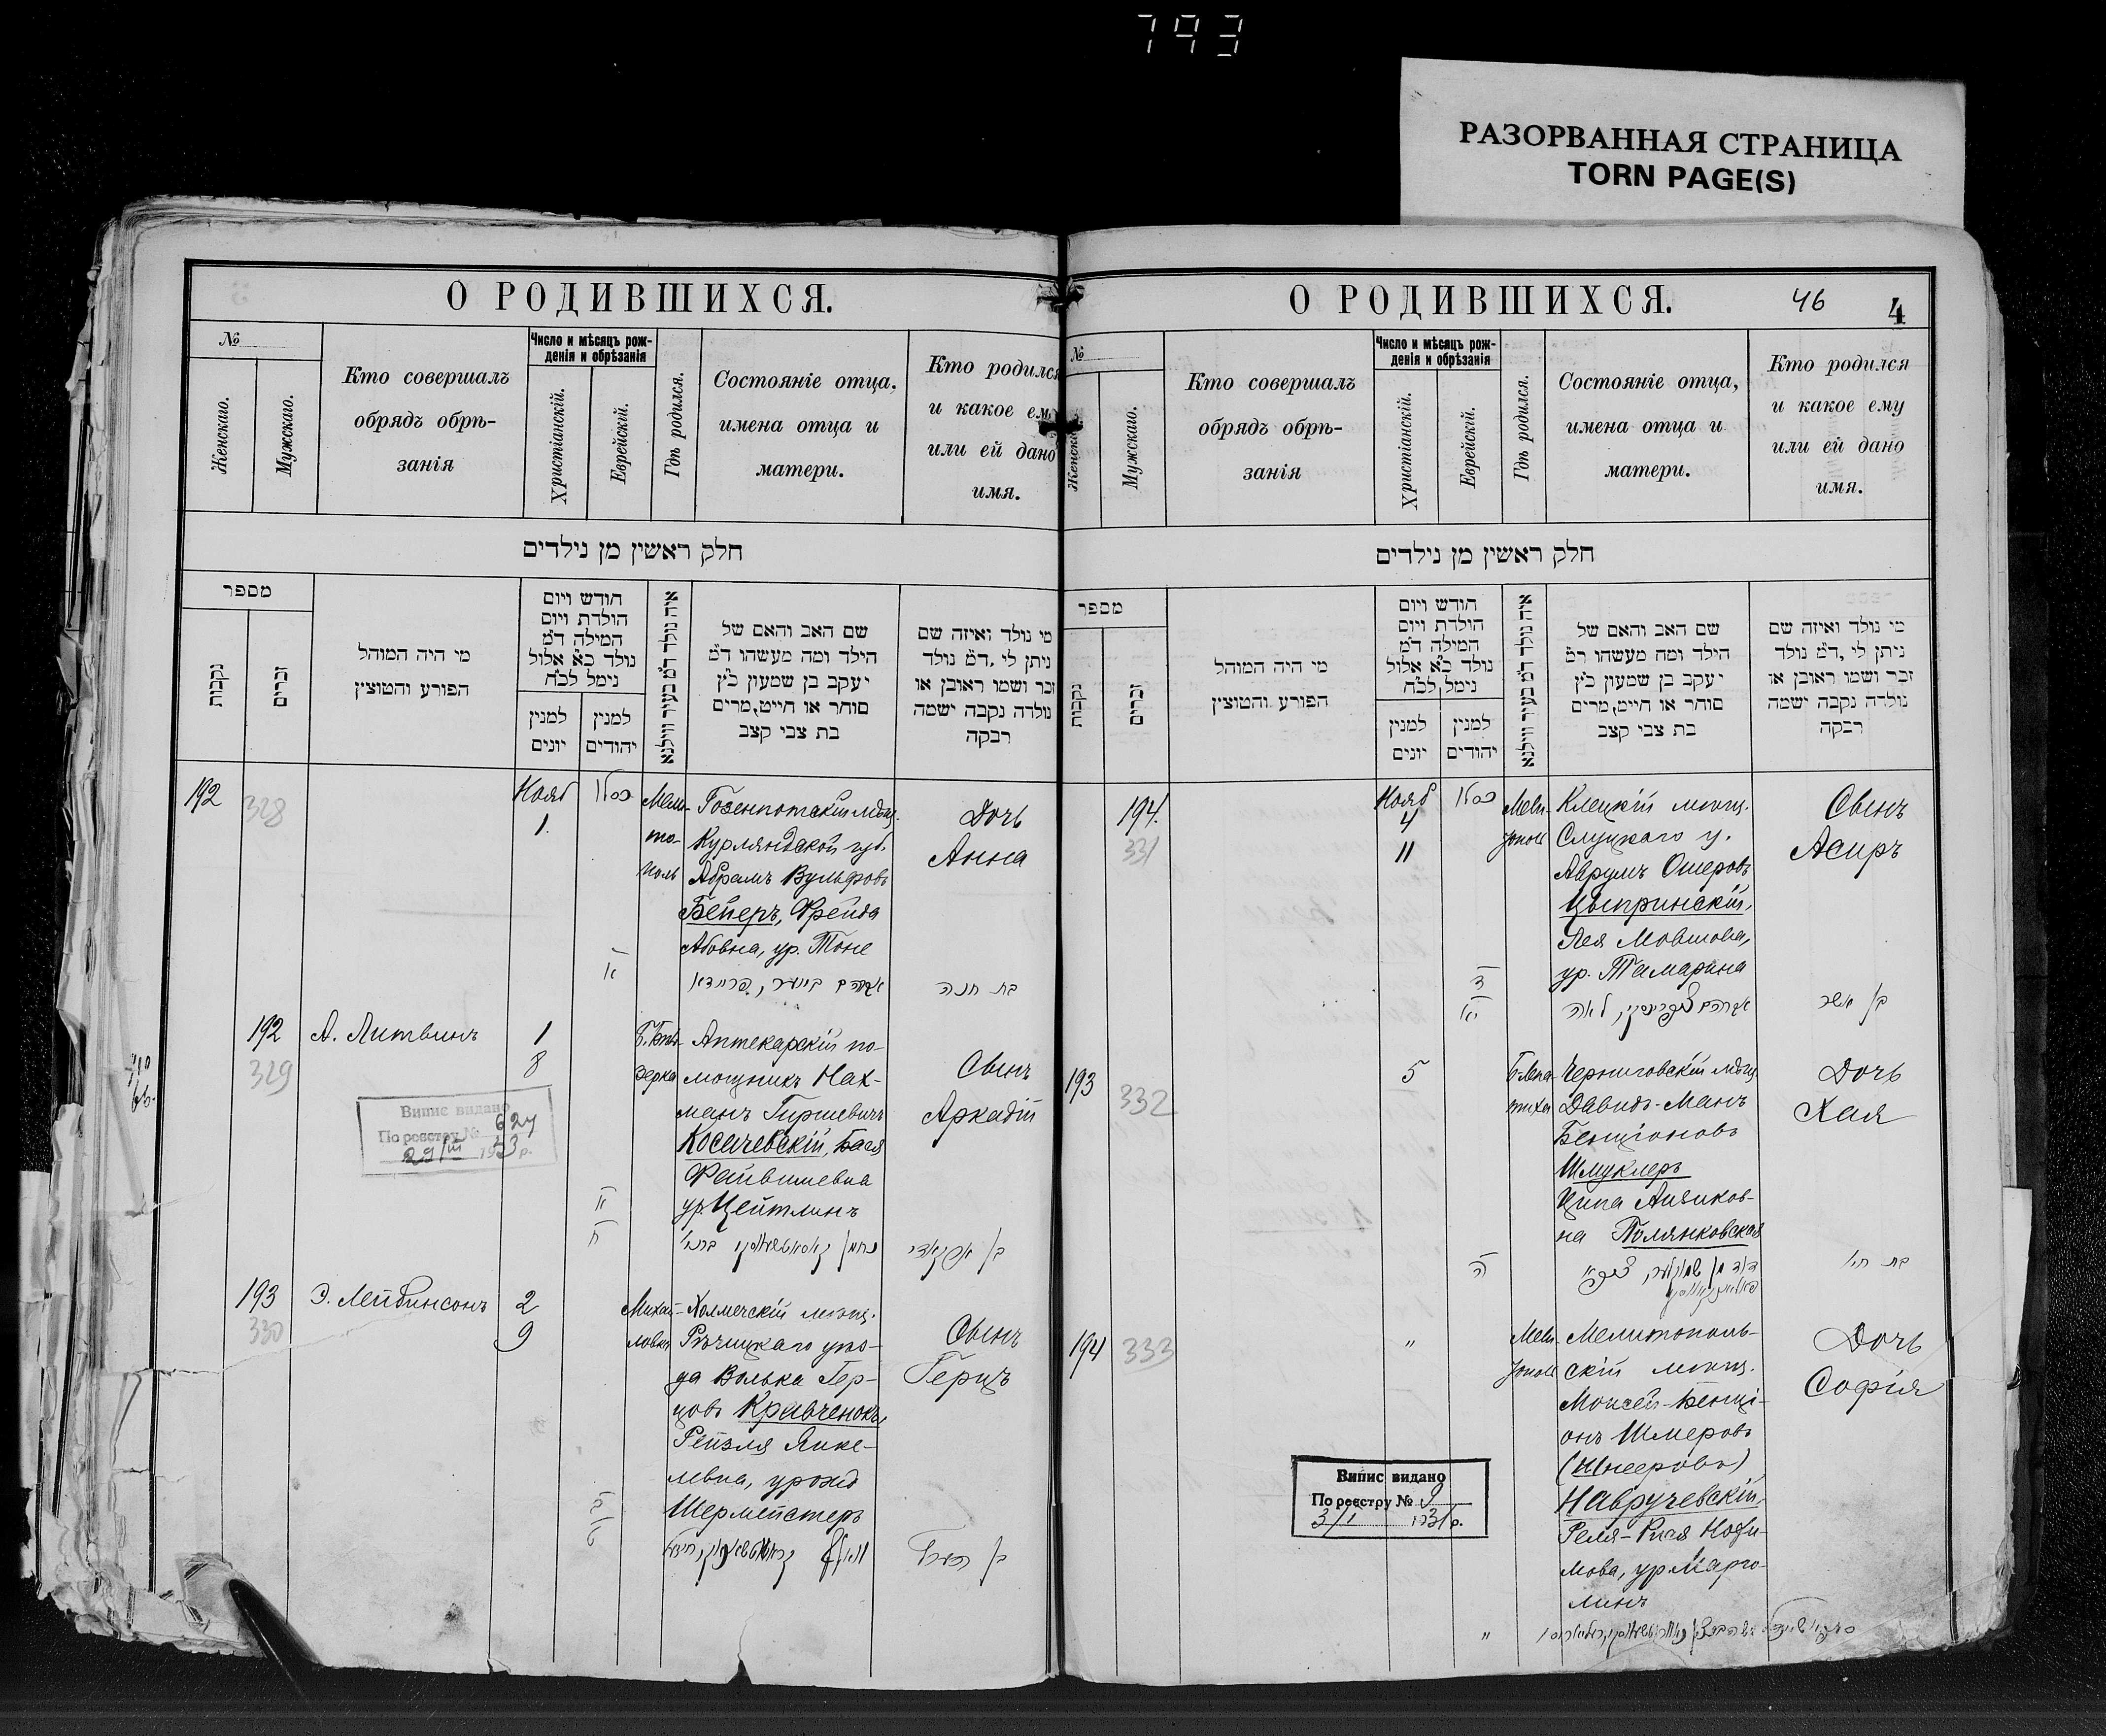 793
РАЗОРВАННАЯ СТРАНИЦА
TORN PAGE(S)
О РОДИВШИХСЯ.
№
Женскаго.
Мужскаго.
Кто совершалъ
обрядъ обрѣ-
занія
Число и мѣсяцъ рож-
денія и обрѣзанія
Христіанскій.
Еврейскій.
Гдѣ родился.
Состояніе отца,
имена отца и
матери.
Кто родился
и какое ему
или ей дано
имя.
חלק ראשין מן נילדים
מספר
נקבות
זכרים
מי היה המוהל
הפורע והמוצץ
חודש ויום
הולדת ויום
המילה ד״מ
נולד כ״א אלול
נימל לכ״ח
למנין
יונים
למנין
יהודים
איה נולד ד״מ בעיר ווילנא
שם האב והאם של
הילד ומה מעשהו ד״מ
יעקב בן שמעון כ״ץ
סוחר או חייט, מרים
בת צבי קצב
מי נולד ואיזה שם
ניתן לי, ד״מ נולד
זכר ושמו ראובן או
נולדה נקבה ישמה
רבקה
192
328
Нояб
1.
כסלו
Мели-
то-
поль
Газенпотскій мѣщ.
Курляндской губ.
Абрамъ Вульфовъ
Бейеръ, Фрейда
Абовна, ур. Тоне
אברהם בייער, פריידא
Дочь
Анна
בת חנה
192
329
А. Литвинъ
1
8
Аптекарскій по-
мощникъ Нах-
манъ Гиршевичъ
Косачевскій, Бася
Файвишевна
ур. Цейтлинъ
Сынъ
Аркадій
בן ארקאדי
Випис видано
По реєстру № 627
29/III 1933 р.
193
330
Э. Лейбинсонъ
2
9
Михай-
ловка
Холмечскій мѣщ.
Рѣчицкаго уѣз-
да Волька Гер-
цовъ Кравченокъ,
Рейзля Янке-
левна, урожд
Шермейстеръ
Сынъ
Герцъ
בן הערץ
О РОДИВШИХСЯ.
46
4
№
Женскаго.
Мужскаго.
Кто совершалъ
обрядъ обрѣ-
занія
Число и мѣсяцъ рож-
денія и обрѣзанія
Христіанскій.
Еврейскій.
Гдѣ родился.
Состояніе отца,
имена отца и
матери.
Кто родился
и какое ему
или ей дано
имя.
חלק ראשין מן נילדים
מספר
נקבות
זכרים
מי היה המוהל
הפורע והמוצץ
חודש ויום
הולדת ויום
המילה ד״מ
נולד כ״א אלול
נימל לכ״ח
למנין
יונים
למנין
יהודים
איה נולד ד״מ בעיר ווילנא
שם האב והאם של
הילד ומה מעשהו ד״מ
יעקב בן שמעון כ״ץ
סוחר או חייט, מרים
בת צבי קצב
מי נולד ואיזה שם
ניתן לי, ד״מ נולד
זכר ושמו ראובן או
נולדה נקבה ישמה
רבקה
194.
331
Нояб
4
11
כסלו
Клецкій мѣщ.
Слуцкаго у.
Аврумъ Ошеровъ
Цыпринскій,
Лея Мовшова,
ур. Тамаркина
Сынъ
Асиръ
בן אשר
193
332
5
Черниговскій мѣщ
Давидъ-Манъ
Бенціоновъ
Шмуклеръ
Ципа Айзиков-
на Полянковская
Дочь
Хая
בת חיה
194
333
"
Мелитополь-
скій мѣщ.
Моисей-Бенці-
онъ Шмеровъ
(Шнееровъ)
Навручевскій,
Реля-Рися Нохи-
мова, ур Марго-
линъ
Дочь
Софія
Випис видано
По реєстру № 9
3/I 1931 р.
"